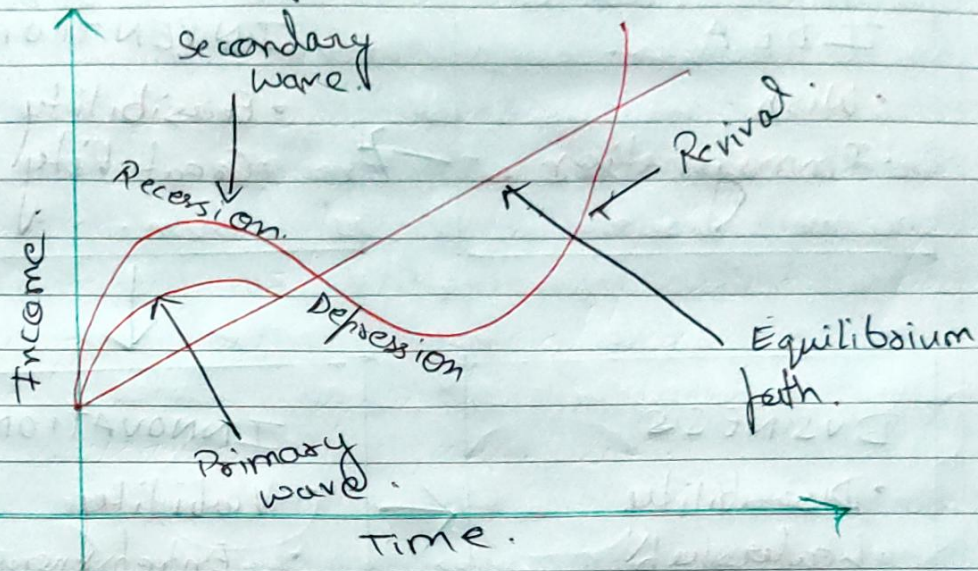 Secondary
wave.
Recession.
Revival.
Income.
Depression
Equilibrium
path.
Primary
wave.
Time.